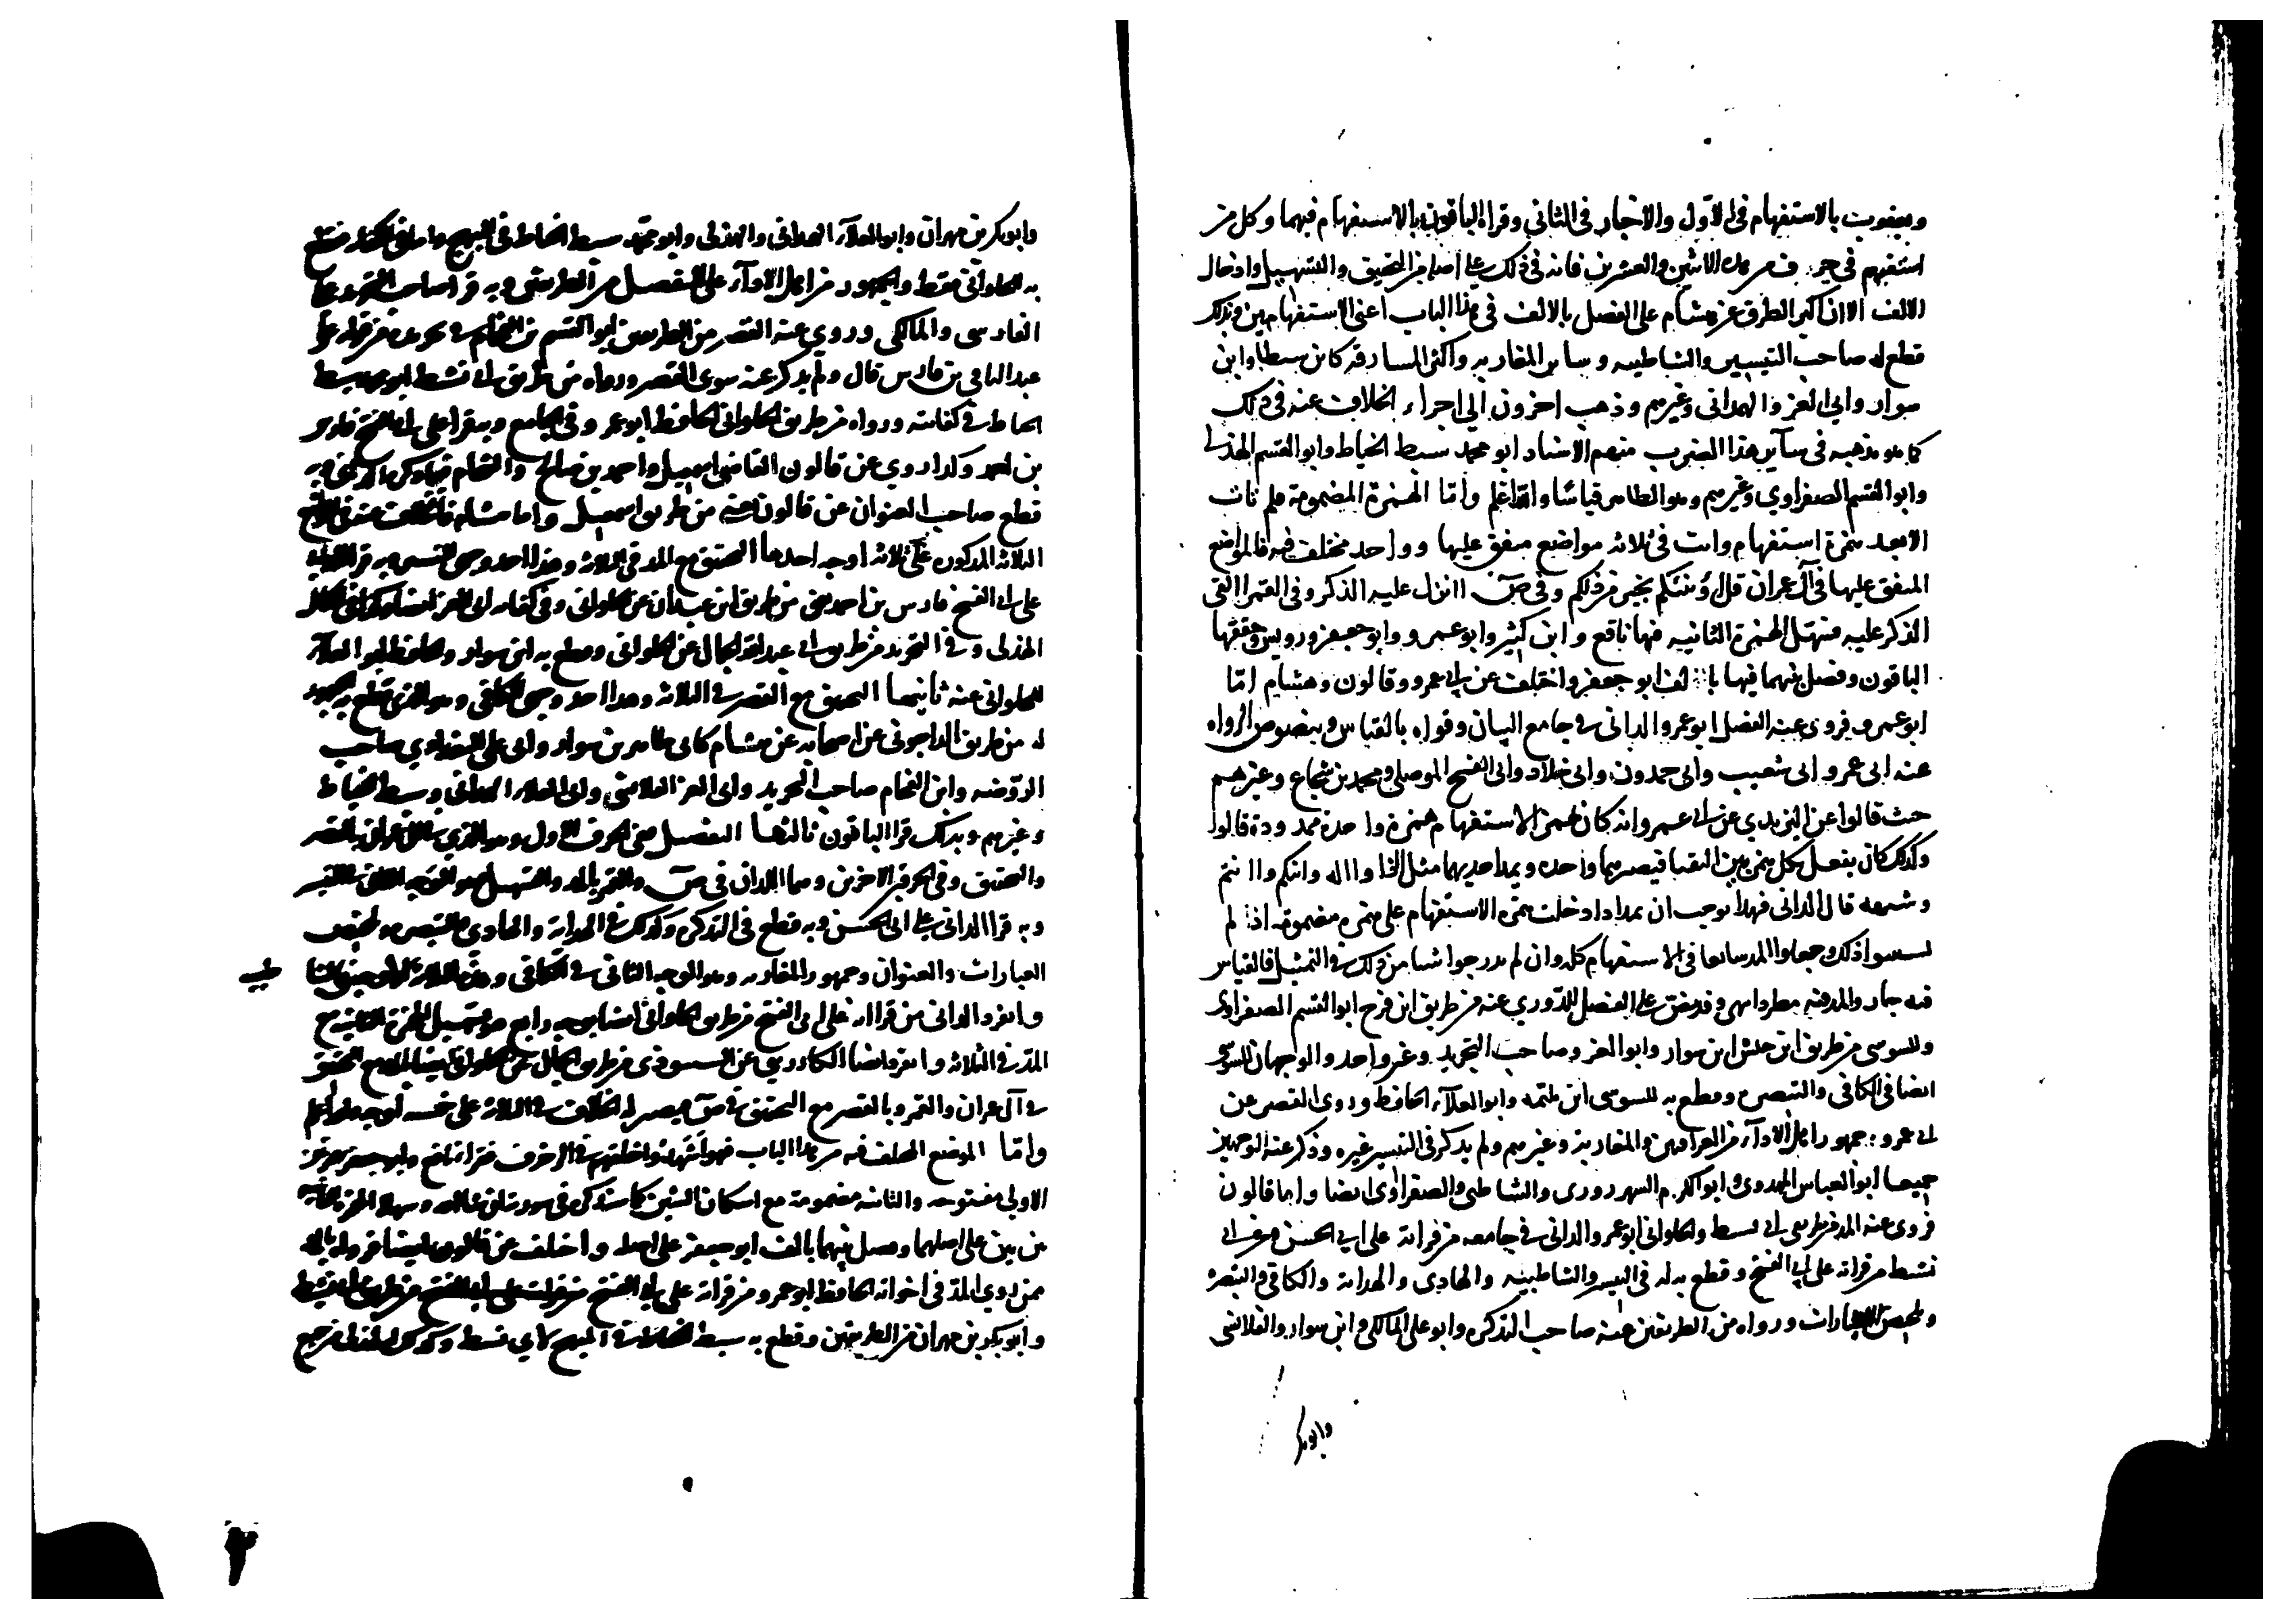 ويعقوب بالاستفهام في الاول والاخبار في الثاني وقراه الباقون بالاستفهام فيهما وكل من
استفهم في حرف من هذه الاثنين والعشرين فانه في ذلك على اصله من التحقيق والتسهيل وادخال
الالف الا ان اكثر الطرق عن هشام على الفصل بالالف في هذا الباب اعني الاستفهامين وبذلك
قطع له صاحب التيسير والشاطبيه وساير المغاربه واكثر المشارقه كابن شيطا وابن
سوار وابي العز والهمداني وغيرهم وذهب اخرون الى اجراء الخلاف عنه في ذلك
كما هو مذهبه في سآير هذا الضرب منهم الاستاد ابو محمد سبط الخياط وابو القسم الهذلي
وابو القسم الصفراوي وغيرهم وهو الظاهر قياسا والله اعلم وامّا الهمزة المضمومة فلم تات
الا بعد همزة استفهام واتت في ثلاثه مواضع متفق عليها وواحد مختلف فيه فالمواضع
المتفق عليها في آل عمران قل اؤنبئكم بخير من ذلكم وفي صۤ اانزل عليه الذكر وفي القمر االقي
الذكر عليه فسهّل الهمزة الثانيه فيها نافع وابن كثير وابو عمرو وابو جعفر ورويس وحققها
الباقون وفصل بينهما فيها بالالف ابو جعفر واختلف عن ابي عمرو وقالون وهشام امّا
ابو عمرو فروى عنه الفصل ابو عمرو الداني في جامع البيان وقواه بالقياس وبنصوص الرواه
عنه ابي عمرو ابي شعيب وابي حمدون وابي خلاد وابي الفتح الموصلي ومحمد بن شجاع وغيرهم
حيث قالوا عن اليزيدي عن ابي عمرو انه كان يهمز الاستفهام همزة واحدة ممدودة قالوا
وكذلك كان يفعل بكل همزتين التقيا فيصيرهما واحده ويمد احديهما مثل ااذا وااله واائنكم وااانتم
وشبهه قال الداني فهذا يوجب ان يمد اذا دخلت همزة الاستفهام على همزه مضمومة اذ لم
يستثنوا ذلك وجعلوا المد سائغا في الاستفهام كله وان لم يدرجوا شيا من ذلك في التمثيل فالقياس
فيه جار والمد فيه مطرد انتهى وقد نص على الفصل للدوري عنه من طريق ابن فرح ابو القسم الصفراوي
وللسوسي من طريق ابن حبش ابن سوار وابو العز وصاحب التجريد وغير واحد والوجهان للسوسي
ايضا في الكافي والتبصره وقطع به للسوسي ابن بليمه وابو العلآء الحافظ وروى القصر عن
ابي عمرو جمهور اهل الادآء من العراقيين والمغاربة وغيرهم ولم يذكر في التيسير غيره وذكر عنه الوجهين
جميعا ابو العباس المهدوي وابو الكرم السهروردي والشاطبي والصفراوي ايضا واما قالون
فروى عنه المد من طريقي ابي نشيط والحلواني ابو عمرو الداني في جامعه من قراته على ابي الحسن وعن ابي
نشيط من قراته على ابي الفتح وقطع به له في التيسير والشاطبيه والهادي والهداية والكافي والتبصره
وتلخيص العبارات ورواه من الطريقين عنه صاحب التذكره وابو علي المالكي وابن سوار والقلانسي
وابو بكر
وابو بكر بن مهران وابو العلآء الهمداني والهذلي وابو محمد سبط الخياط في المبهج
به للحلواني فقط والجمهور من اهل الادآء على الفصل من الطريقين وبه قرا صاحب التجريد على
الفارسي والمالكي وروى عنه القصر من الطريقين ابو القسم بن الفحام في تجريده من قراته على
عبد الباقي بن فارس قال ولم يذكر عنه سوى القصر ورواه من طريق ابي نشيط ابو محمد سبط
الخياط في كفايته ورواه من طريق الحلواني الحافظ ابو عمرو في الجامع وبه قرا على ابي الفتح فارس
بن احمد وكذا روى عن قالون القاضي اسمعيل واحمد بن صالح والشحام فيما ذكره الداني وبه
قطع صاحب العنوان عن قالون عنه من طريق اسمعيل واما هشام فاختلف عنه في المواضع
الثلاثه المذكوره على ثلاثه اوجه احدها التحقيق مع المد في الثلاثه وهذا احد وجهي التيسير وبه قرا الداني
على ابي الفتح فارس بن احمد يعني من طريق ابن عبدان عن الحلواني وفي كفاية ابي العز ايضا
الهذلي وفي التجريد من طريق ابي عبد الله الجمال عن الحلواني وقطع به ابن سوار والحافظ ابو العلآء
للحلواني عنه ثانيها التحقيق مع القصر في الثلاثه وهذا احد وجهي الكافي وهو الذي قطع به الجمهور
له من طريق الداجوني عن اصحابه عن هشام كابي طاهر بن سوار وابي علي البغدادي صاحب
الروّضه وابن الفحام صاحب التجريد وابي العز القلانسي وابي العلاء الهمداني وسبط الخياط
وغيرهم وبذلك قرا الباقون ثالثها التفصيل ففي الحرف الاول وهو الذي في آل عمران بالقصر
والتحقيق وفي الحرفين الاخرين وهما اللذان في صۤ والقمر بالمد والتسهيل وهو الوجه الثاني في التيسير
وبه قرا الداني على ابي الحسن وبه قطع في التذكره وكذلك في الهداية والهادي والتبصره وتلخيص
العبارات والعنوان وجمهور المغاربه وهو الوجه الثاني في الكافي
وانفرد الداني من قراته على ابي الفتح من طريق الحلواني ايضا بوجه رابع وهو تسهيل الهمزة الثانيه مع
المد في الثلاثه وانفرد ايضا الكارزيني عن الشنبوذي من طريق الجمال عن الحلواني ايضا بالمد مع التحقيق
في آل عمران والقمر وبالقصر مع التحقيق في صۤ فيصير له الخلاف في الثلاثه على خمسه اوجه والله اعلم
وامّا الموضع المختلف فيه من هذا الباب فهو اشهدوا خلقهم في الزخرف فقراه نافع وابو جعفر بهمزتين
الاولى مفتوحه والثانيه مضمومة مع اسكان الشين كما سنذكره في سورته ان شا الله وسهلا الهمزة الثانيه
بين بين على اصلهما وفصل بينهما بالف ابو جعفر على اصله واختلف عن قالون ايضا فرواه بالمد
ممن روى المد في اخواته الحافظ ابو عمرو من قراته على ابي الفتح
وابو بكر بن مهران من الطريقين وقطع به سبط الخياط في المبهج لابي نشيط